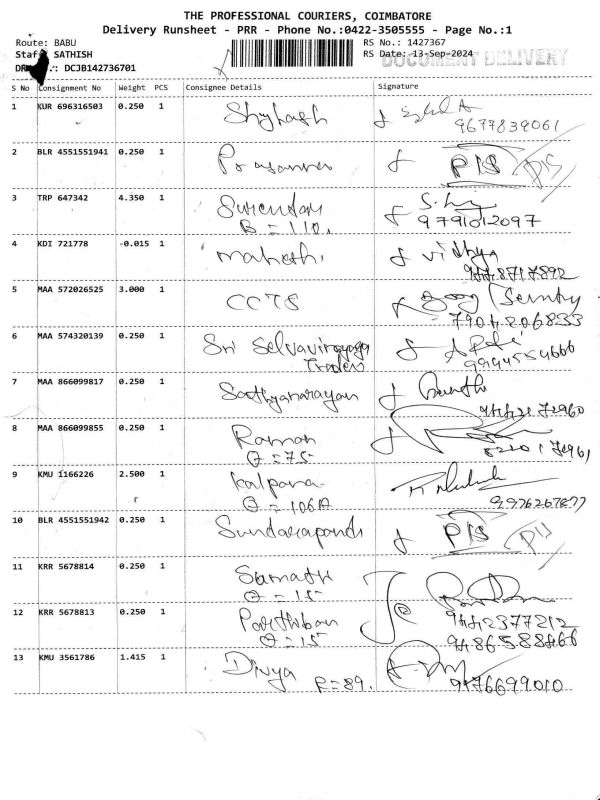 THE PROFESSIONAL COURIERS, COIMBATORE
Delivery Runsheet - PRR - Phone No.:0422-3505555 - Page No.:1
Route: BABU
RS No.: 1427367
Staff: SATHISH
RS Date: 13-Sep-2024
DOCUMENT DELIVERY
: DCJB142736701
S No Consignment No Weight PCS Consignee Details Signature
1 KUR 696316503 0.250 1
9677839061
2 BLR 4551551941 0.250 1 Prasanna PIS PIS
3 TRP 647342 4.350 1 Surendar
B = 110. 9791012097
4 KDI 721778 -0.015 1 mahesh. Vidhya
5 MAA 572026525 3.000 1 CCTS
7904206833
6 MAA 574320139 0.250 1 Sri Selvavinayaga
Traders 9994554666
7 MAA 866099817 0.250 1 Sathyanarayan
8 MAA 866099855 0.250 1 Raman
O = 75
9 KMU 1166226 2.500 1 Kalpana
O = 106A
10 BLR 4551551942 0.250 1 Sundarapandi PIS PIS
11 KRR 5678814 0.250 1
O = 15
12 KRR 5678813 0.250 1 Parthiban 9442377212
O = 15 9486588466
13 KMU 3561786 1.415 1 Divya
R = 89. 9176699010